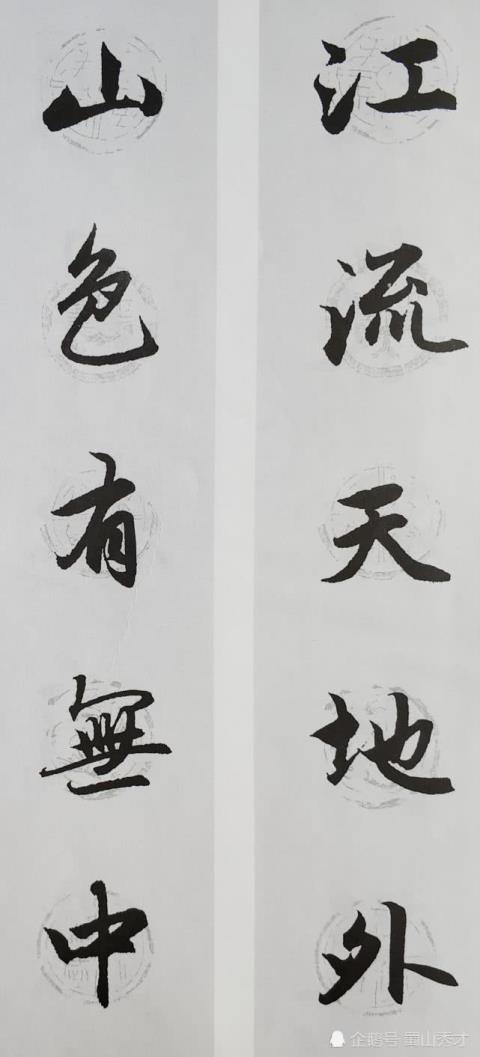 江流天地外
山色有無中
企鹅号 蜀山秀才